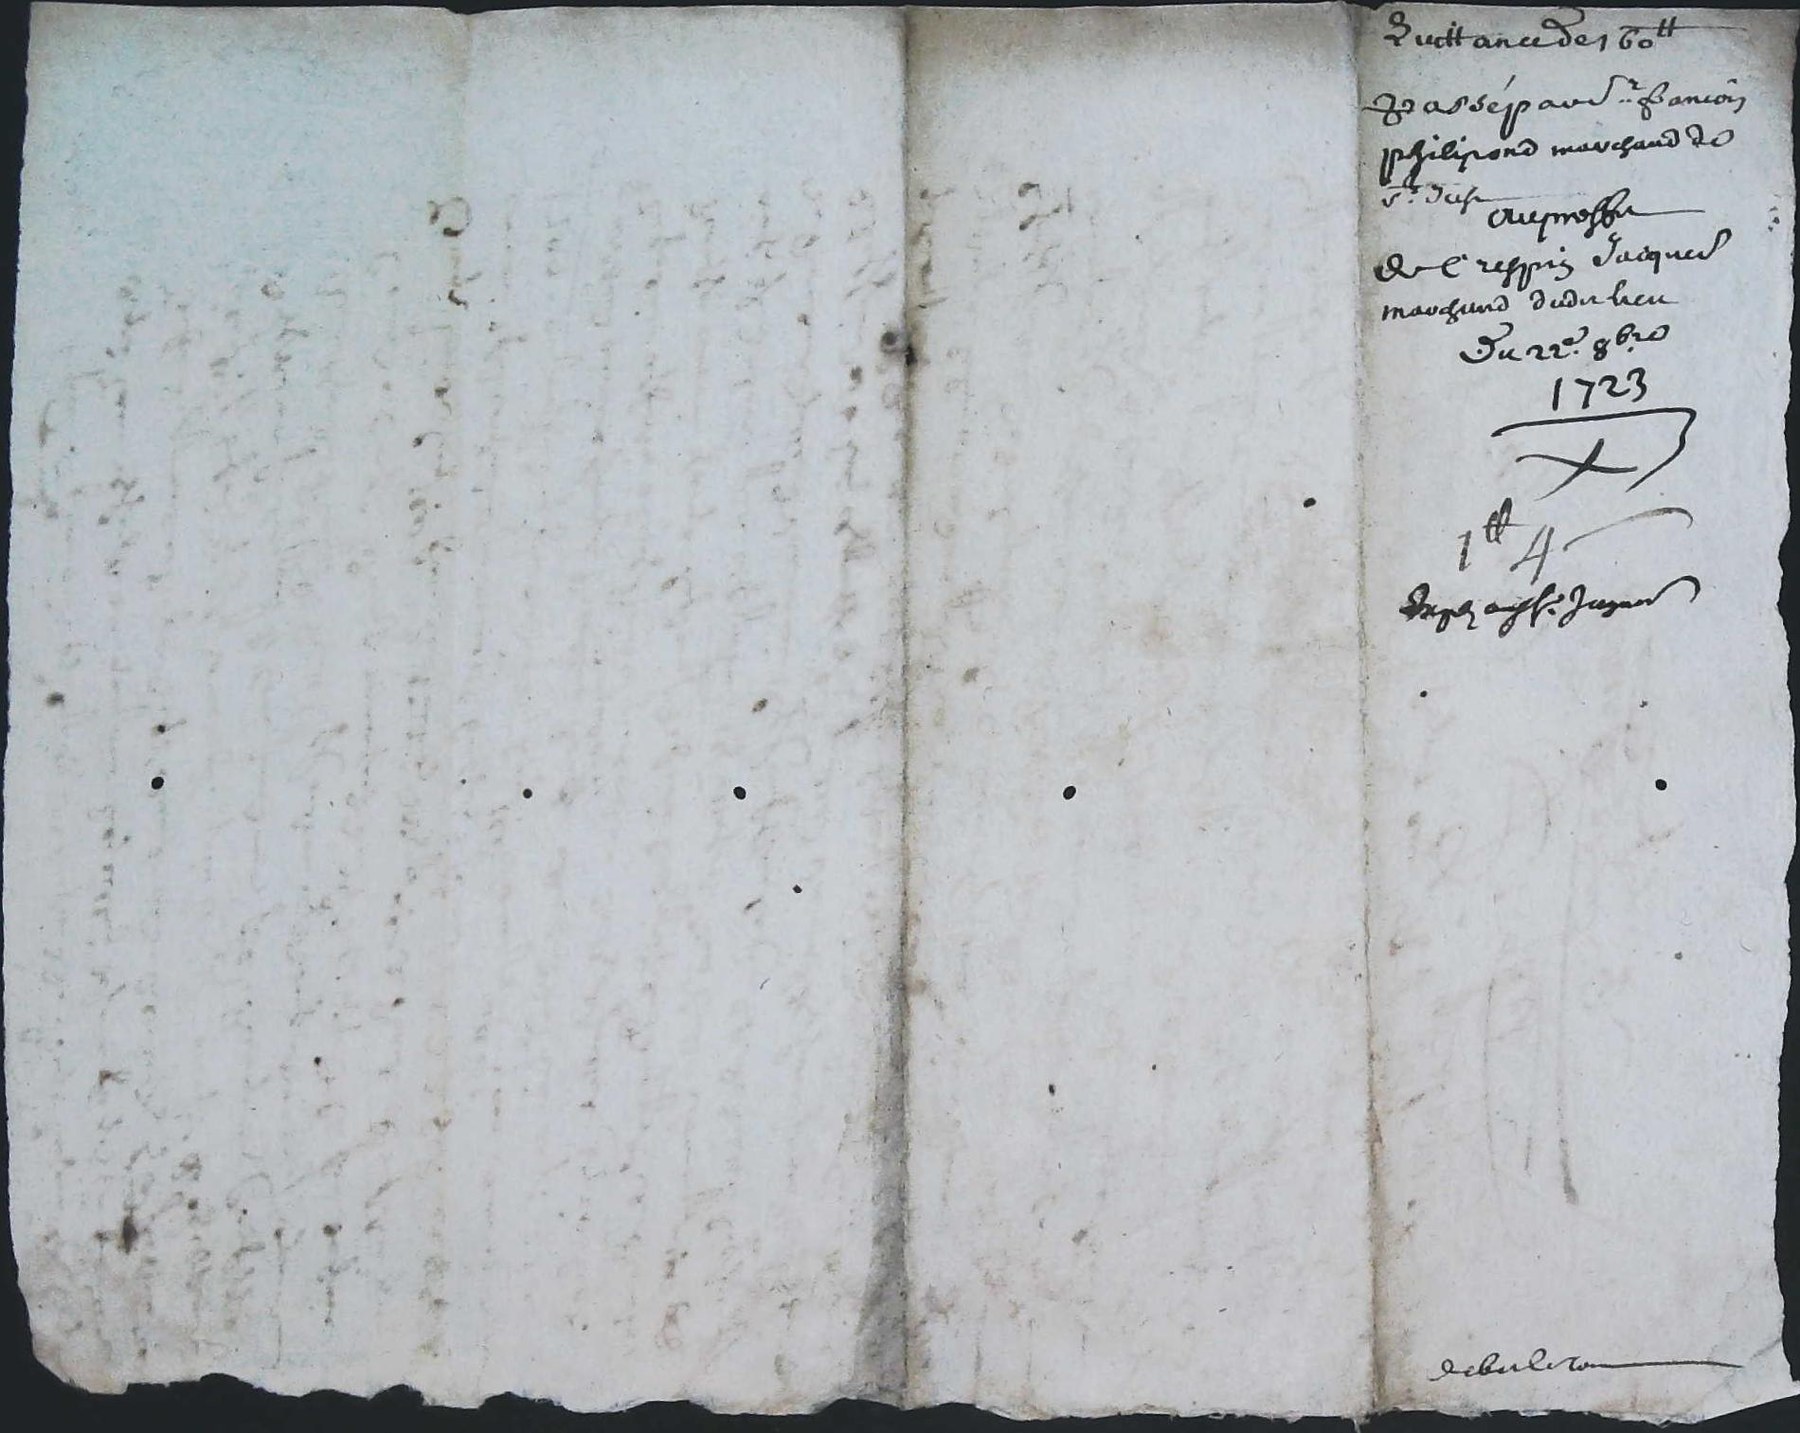 Quittance de 160tt
Passé par Sr. francois
philipond marchand de
St. Just
Au proffit
de Crespin Jacques
marchand dudit lieu
Du 22e. 8bre
1723
1tt 4
Jacques